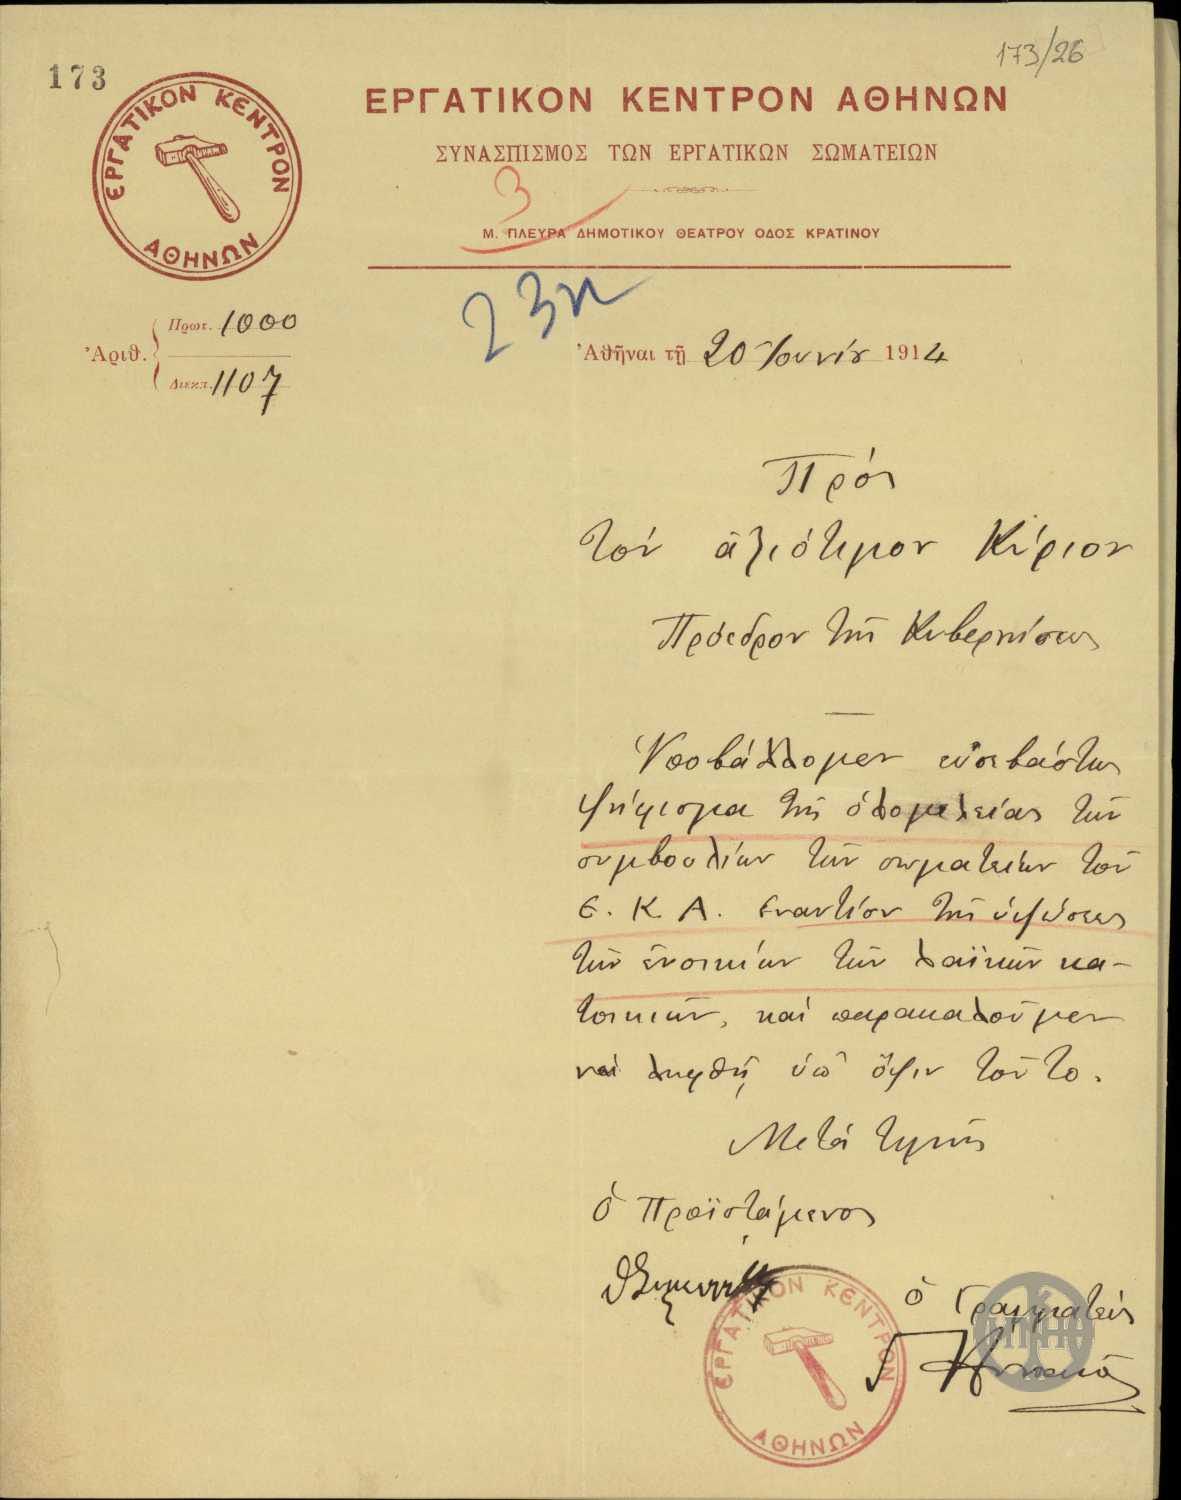 173
173/26
ΕΡΓΑΤΙΚΟΝ ΚΕΝΤΡΟΝ
ΑΘΗΝΩΝ
ΕΡΓΑΤΙΚΟΝ ΚΕΝΤΡΟΝ ΑΘΗΝΩΝ
ΣΥΝΑΣΠΙΣΜΟΣ ΤΩΝ ΕΡΓΑΤΙΚΩΝ ΣΩΜΑΤΕΙΩΝ
3
Μ. ΠΛΕΥΡΑ ΔΗΜΟΤΙΚΟΥ ΘΕΑΤΡΟΥ ΟΔΟΣ ΚΡΑΤΙΝΟΥ
Ἀριθ. Πρωτ. 1000
Διεκπ. 1107
Ἀθῆναι τῇ 20 Ἰουνίου 1914
Πρός
τόν ἀξιότιμον Κύριον
Πρόεδρον τῆς Κυβερνήσεως
Ὑποβάλλομεν εὐσεβάστως
ψήφισμα τῆς ὁλομελείας τῶν
συμβουλίων τῶν σωματείων τοῦ
Ε. Κ. Α. ἐναντίον τῆς ὑψώσεως
τῶν ἐνοικίων τῶν λαϊκῶν κα-
τοικιῶν, καί παρακαλοῦμεν
νά ληφθῇ ὑπ' ὄψιν τοῦτο.
Μετά τιμῆς
Ὁ Προϊστάμενος
ὁ Γραμματεύς
ΕΡΓΑΤΙΚΟΝ ΚΕΝΤΡΟΝ
ΑΘΗΝΩΝ